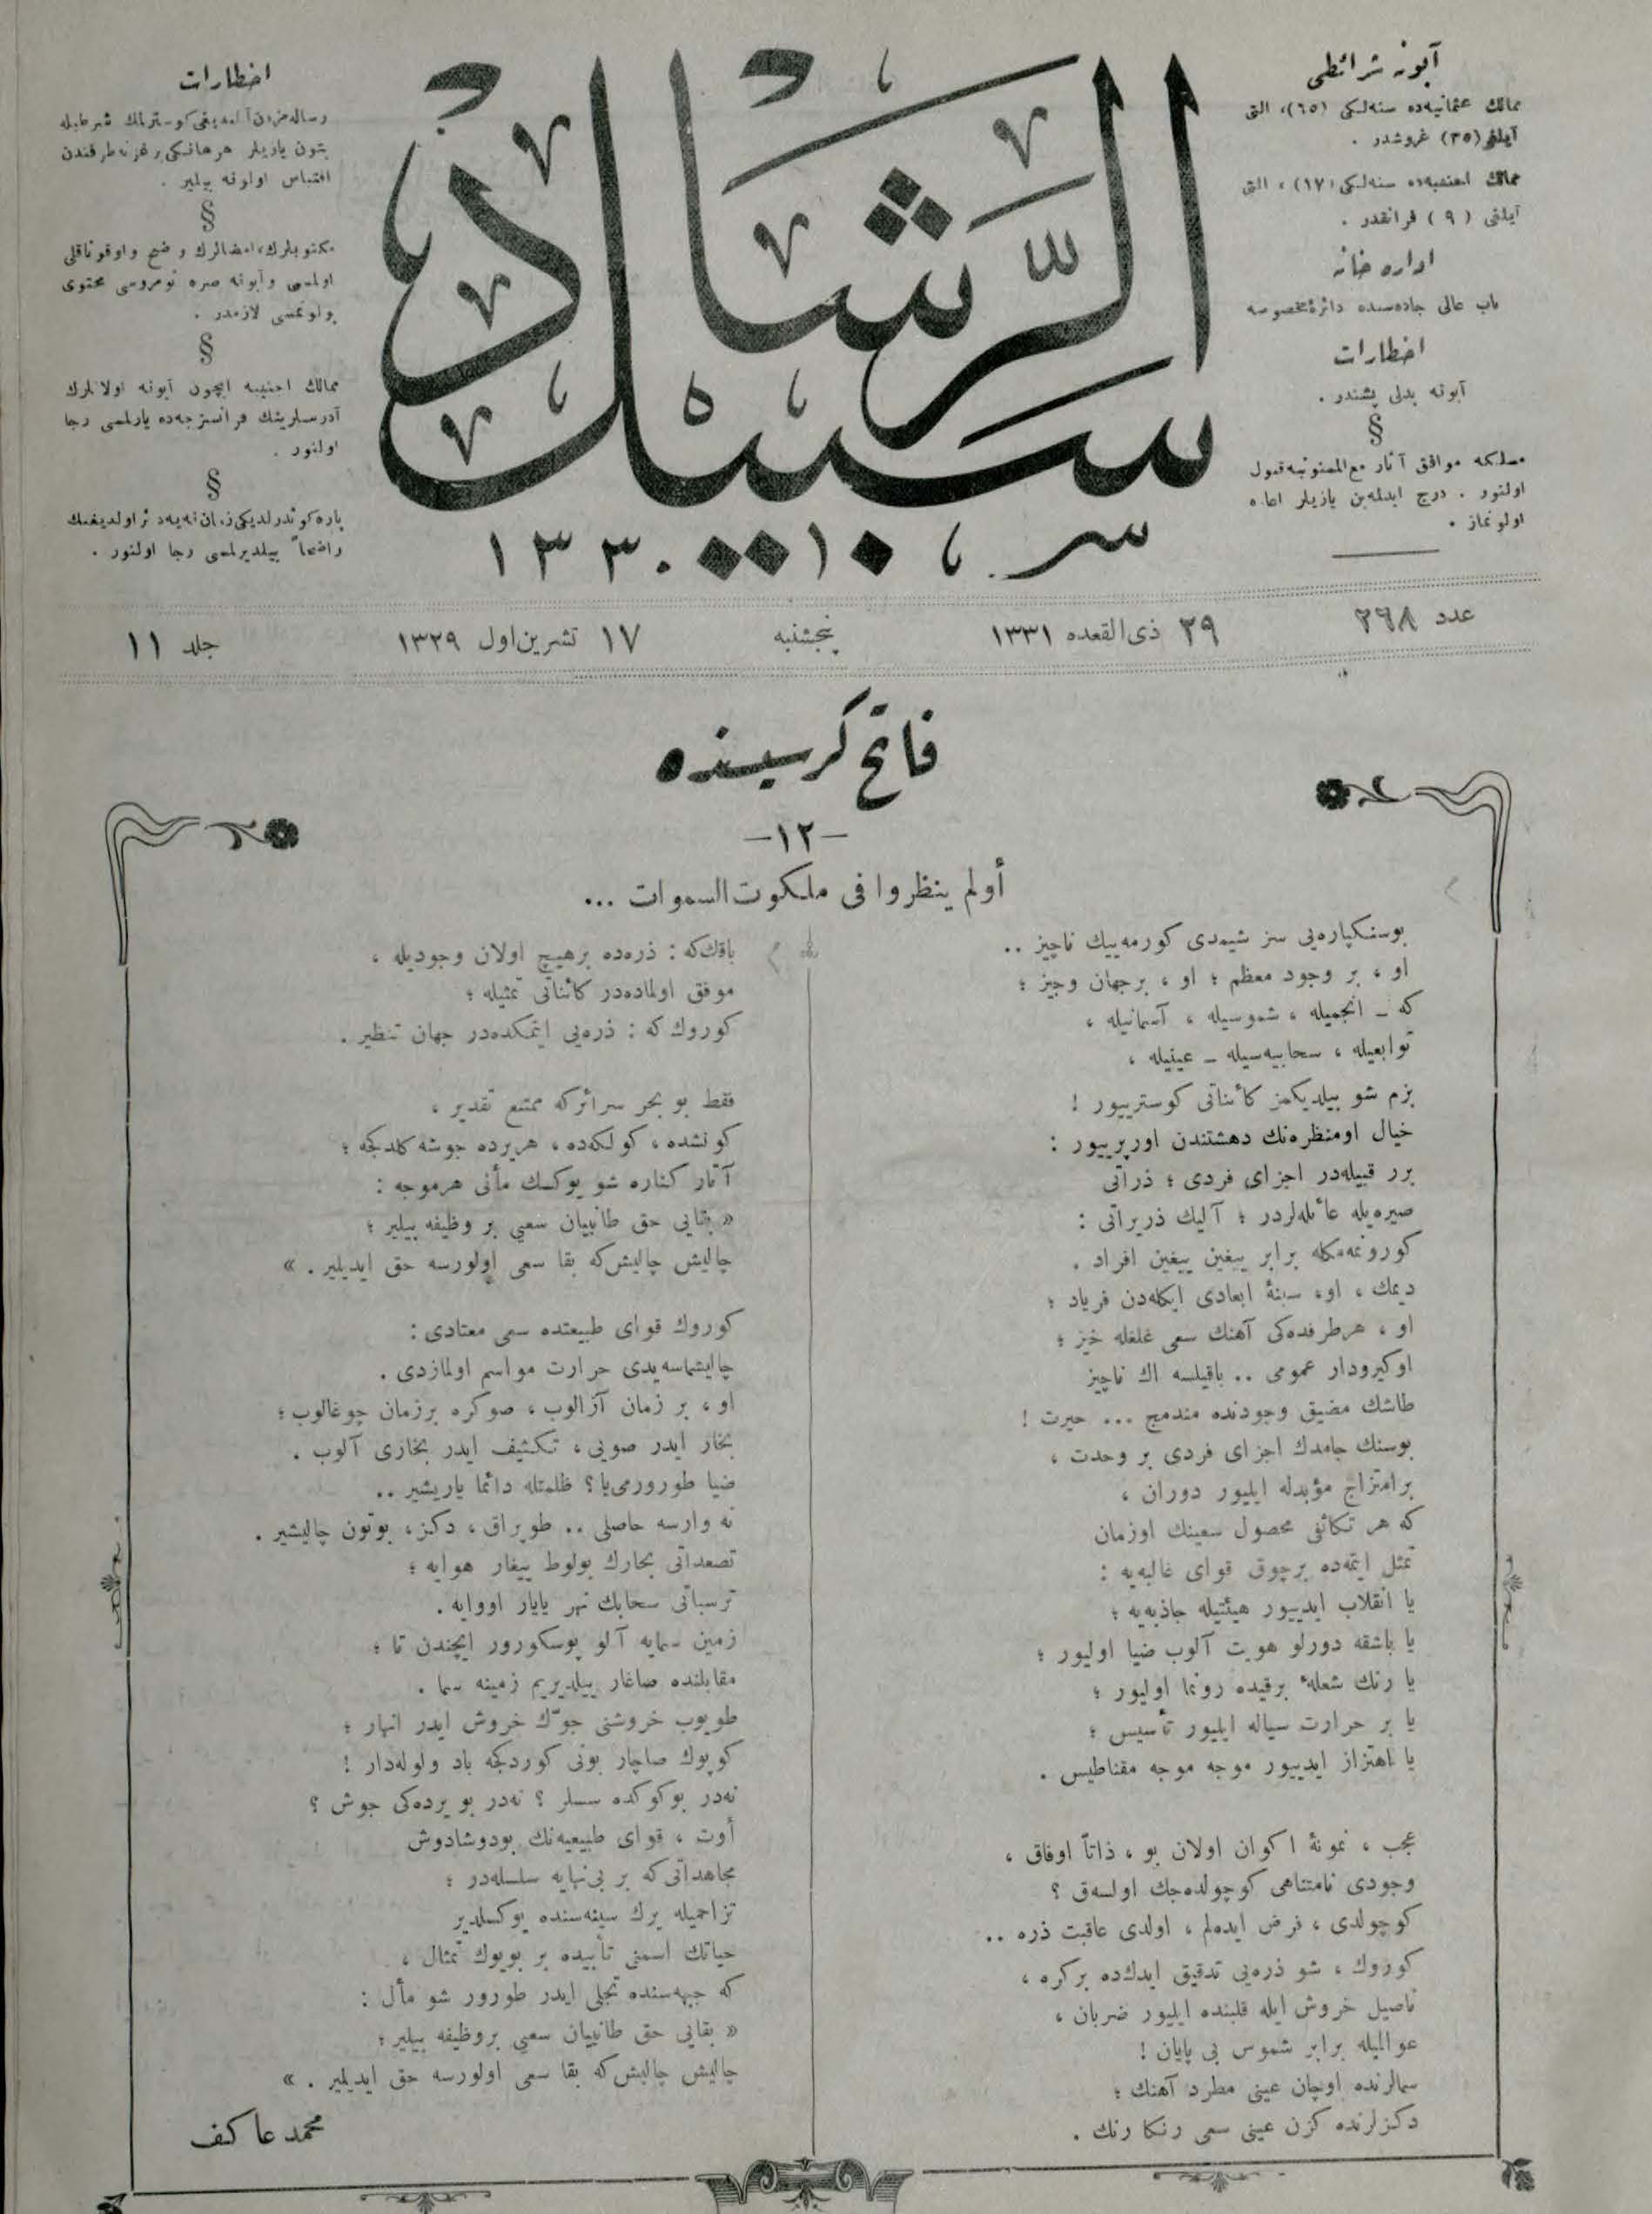 آبونه شرائطی
ممالك عثمانیه‌ده سنه‌لكی (٦٥)، التی
آیلغی (٣٥) غروشدر .
ممالك اجنبیه‌ده سنه‌لكی (١٧) ، التی
آیلغی (٩) فرانقدر .
اداره خانه
باب عالی جاده‌سنده دائرهٔ مخصوصه
اخطارات
آبونه بدلی پشندر .
§
مسلكه موافق آثار مع الممنونیه قبول
اولنور . درج ایدلمه‌ین یازیلر اعاده
اولونماز .
سبیل الرشاد
سر ، ١٠ ١٣٣٠
اخطارات
رساله‌مزدن آلندیغی كوسترلمك شرطیله
بتون یازیلر هر هانكی بر غزته طرفندن
اقتباس اولونه بیلیر .
§
مكتوبلرك، امضالرك واضح و اوقوناقلی
اولمسی و آبونه صره نومروسی محتوی
بولونمسی لازمدر .
§
ممالك اجنبیه ایچون آبونه اولانلرك
آدرسلرینك فرانسزجه‌ده یازلمسی رجا
اولنور .
§
پاره كوندرلدیكی زمان نه‌یه دائر اولدیغنك
واضحاً بیلدیرلمسی رجا اولنور .
عدد ٢٦٨ ٢٩ ذی القعده ١٣٣١ پنجشنبه ١٧ تشرین اول ١٣٢٩ جلد ١١
فاتح كرسیسنده
—١٢—
أولم ینظروا فی ملكوت السموات ...
بوسنكپاره‌یی سز شیمدی كورمه‌ییك ناچیز ..
او ، بر وجود معظم ؛ او ، برجهان وجیز ؛
كه ـ انجمیله ، شموسیله ، آسمانیله ،
توابعیله ، سحابیه‌سیله ـ عینیله ،
بزم شو بیلدیكمز كائناتی كوسترییور !
خیال اومنظره‌نك دهشتندن اورپرییور :
برر قبیله‌در اجزای فردی ؛ ذراتی
صیره‌یله عائله‌لردر ؛ آلیك ذریراتی :
كورونمه‌مكله برابر ییغین ییغین افراد .
دیمك ، او، سینهٔ ابعادی ایكله‌دن فریاد ؛
او ، هرطرفده‌كی آهنك سعی غلغله خیز ؛
اوكیرودار عمومی .. باقیلسه اك ناچیز
طاشك مضیق وجودنده مندمج ... حیرت !
بوسنك جامدك اجزای فردی بر وحدت ،
بر امتزاج مؤبدله ایلیور دوران ،
كه هر تكاثفی محصول سعینك اوزمان
تمثل ایتمه‌ده برچوق قوای غالبه‌یه :
یا انقلاب ایدییور هیئتیله جاذبه‌یه ؛
یا باشقه دورلو هویت آلوب ضیا اولیور ؛
یا رنك شعلهٔ برقیده رونما اولیور ؛
یا بر حرارت سیاله ایلیور تأسیس ؛
یا اهتزاز ایدییور موجه موجه مقناطیس .
عجب ، نمونهٔ اكوان اولان بو ، ذاتاً اوفاق ،
وجودی نامتناهی كوچولده‌جك اولسه‌ق ؟
كوچولدی ، فرض ایده‌لم ، اولدی عاقبت ذره ..
كوروك ، شو ذره‌یی تدقیق ایدك‌ده بركره ،
ناصیل خروش ایله قلبنده ایلیور ضربان ،
عوالمیله برابر شموس بی پایان !
سمالرنده اوچان عینی مطرد آهنك ؛
دكزلرنده كزن عینی سعی رنكا رنك .
باقك كه : ذره‌ده برهیچ اولان وجودیله ،
موفق اولماده‌در كائناتی تمثیله ؛
كوروك كه : ذره‌یی ایتمكده‌در جهان تنظیر .
فقط بو بحر سرائركه ممتنع تقدیر ،
كونشده ، كولكه‌ده ، هریرده جوشه كلدكجه ؛
آتار كناره شو یوكسك مآنی هرموجه :
« بقایی حق طانییان سعیی بر وظیفه بیلیر ؛
چالیش چالیش كه بقا سعی اولورسه حق ایدیلیر . »
كوروك قوای طبیعتده سعی معتادی :
چالیشماسه‌یدی حرارت مواسم اولمازدی .
او ، بر زمان آزالوب ، صوكره برزمان چوغالوب ؛
بخار ایدر صویی ، تكثیف ایدر بخاری آلوب .
ضیا طورورمی یا؟ ظلمتله دائما یاریشیر ..
نه وارسه حاصلی .. طوپراق ، دكز ، بوتون چالیشیر .
تصعداتی بحارك بولوط ییغار هوایه ؛
ترسباتی سحابك نهر یایار اووایه .
زمین سمایه آلو پوسكورور ایچندن تا ؛
مقابلنده صاغار ییلدیریم زمینه سما .
طویوب خروشنی جوّك خروش ایدر انهار ؛
كوپوك صاچار بونی كوردكجه باد ولوله‌دار !
نه‌در بوكوكده سسلر ؟ نه‌در بو یرده‌كی جوش ؟
أوت ، قوای طبیعیه‌نك بودوشادوش
مجاهداتی كه بر بی‌نهایه سلسله‌در ؛
تزاحمیله یرك سینه‌سنده یوكسلدیر
حیاتك اسمنی تأییده بر بویوك تمثال ،
كه جبهه‌سنده تجلی ایدر طورور شو مآل :
« بقایی حق طانییان سعیی بروظیفه بیلیر ؛
چالیش چالیش كه بقا سعی اولورسه حق ایدیلیر . »
محمد عاكف